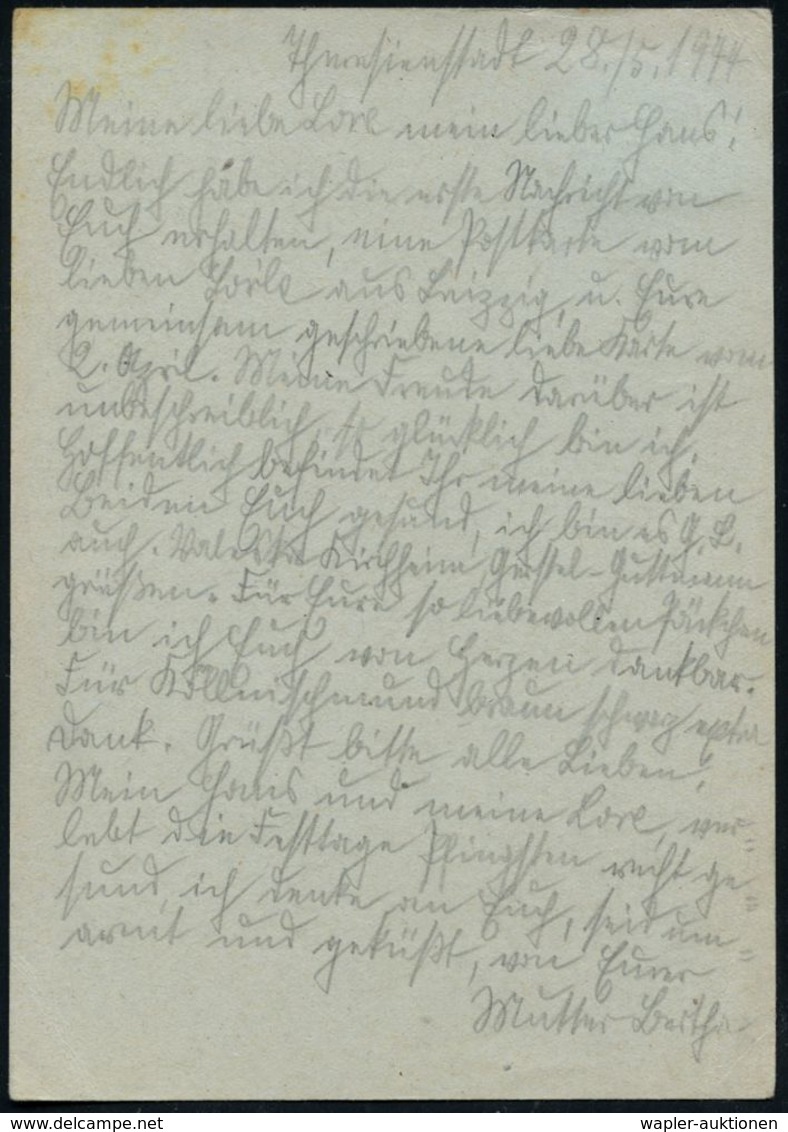 Theresienstadt 28./5. 1944
Meine liebe Lore mein lieber Hans!
Endlich habe ich die erste Nachricht von
Euch erhalten, eine Postkarte vom
lieben Lorle aus Leipzig, u. Eure
gemeinsam geschriebene liebe Karte vom
2. April. Meine Freude darüber ist
unbeschreiblich, so glücklich bin ich.
Hoffentlich befindet Ihr meine lieben
Beiden Euch gesund, ich bin es G. L.
auch. Valeska Kirchheim, Gerstel-Guttmann
grüßen. Für Eure so liebevollen Päckchen
bin ich Euch von Herzen dankbar.
Für braun schwarz extra
Dank. Grüßt bitte alle Lieben!
Mein Hans und meine Lore, ver=
lebt die Festtage Pfingsten recht ge=
sund, ich denke an Euch, seid um=
armt und geküßt, von Eurer
Mutter Bertha
wapler-auktionen
www.delcampe.net
wapler-auktionen